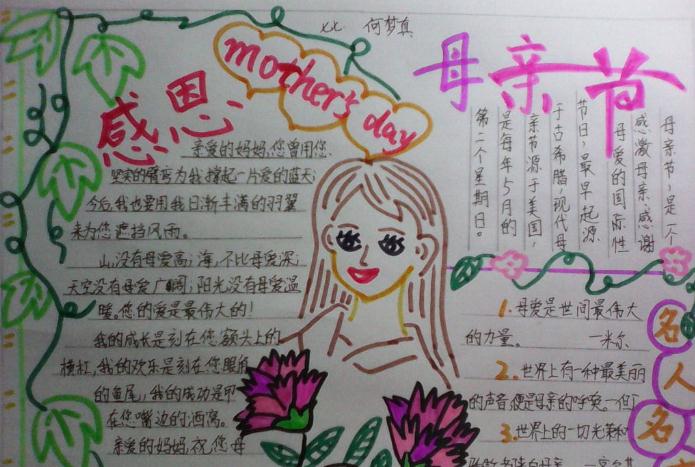 七七 何梦真
mother's day
感恩
亲爱的妈妈,您曾用您
坚实的臂弯为我撑起一片爱的蓝天;
今后,我也要用我日渐丰满的羽翼
来为您遮挡风雨。
山,没有母爱高;海,不比母爱深;
天空没有母爱广阔;阳光没有母爱温
暖。您的爱是最伟大的!
我的成长是刻在您额头上的
横杠,我的欢乐是刻在您眼角
的鱼尾,我的成功是
在您嘴边的酒窝。
亲爱的妈妈,祝您母
母亲节
母亲节,是一个
感激母亲、感谢
母爱的国际性
节日,最早起源
于古希腊,现代母
亲节源于美国,
是每年5月的
第二个星期日。
1.母爱是世间最伟大
的力量。 一米尔
2.世界上有一种最美丽
的声音,便是母亲的呼唤。一但丁
3.世界上的一切光荣和
名
人
名